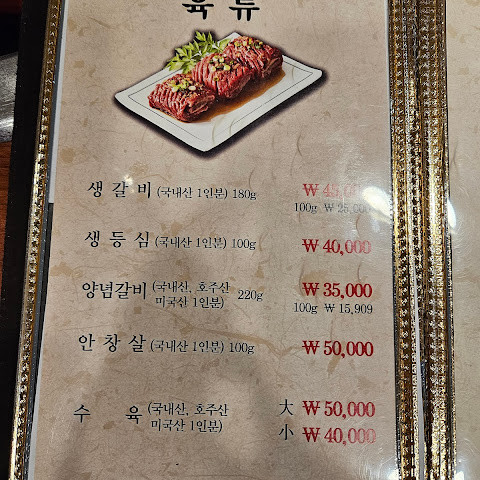 육 류
생 갈 비 (국내산 1인분) 180g ₩ 45,000
100g ₩ 25,000
생 등 심 (국내산 1인분) 100g ₩ 40,000
양념갈비 (국내산, 호주산 미국산 1인분) 220g ₩ 35,000
100g ₩ 15,909
안 창 살 (국내산 1인분) 100g ₩ 50,000
수 육 (국내산, 호주산 미국산 1인분) 大 ₩ 50,000
小 ₩ 40,000